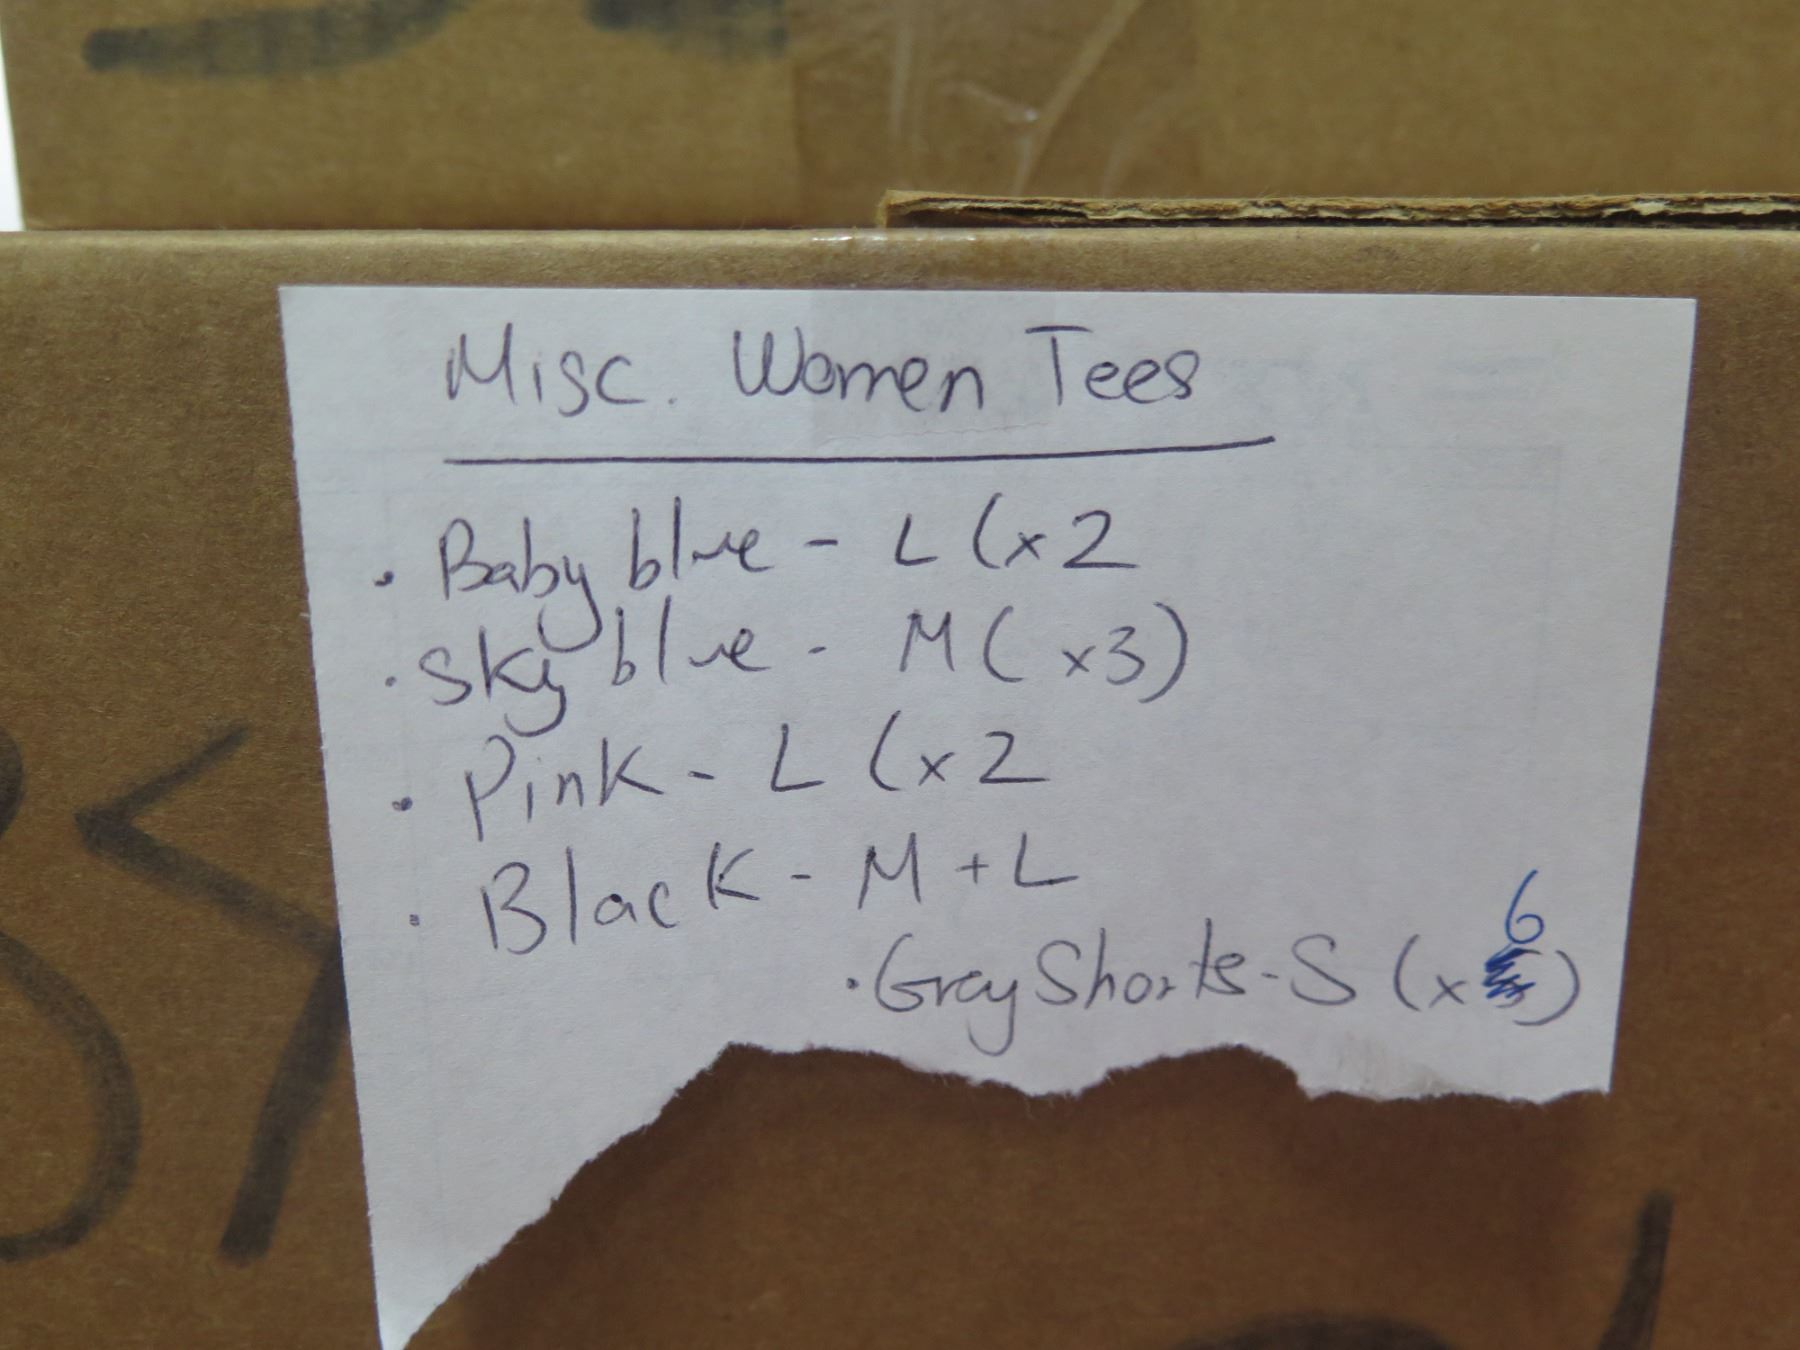 Misc. Women Tees
· Baby blue - L (x2
· Sky blue - M (x3)
· Pink - L (x2
· Black - M + L
6
· Grey Shorts - S (x)